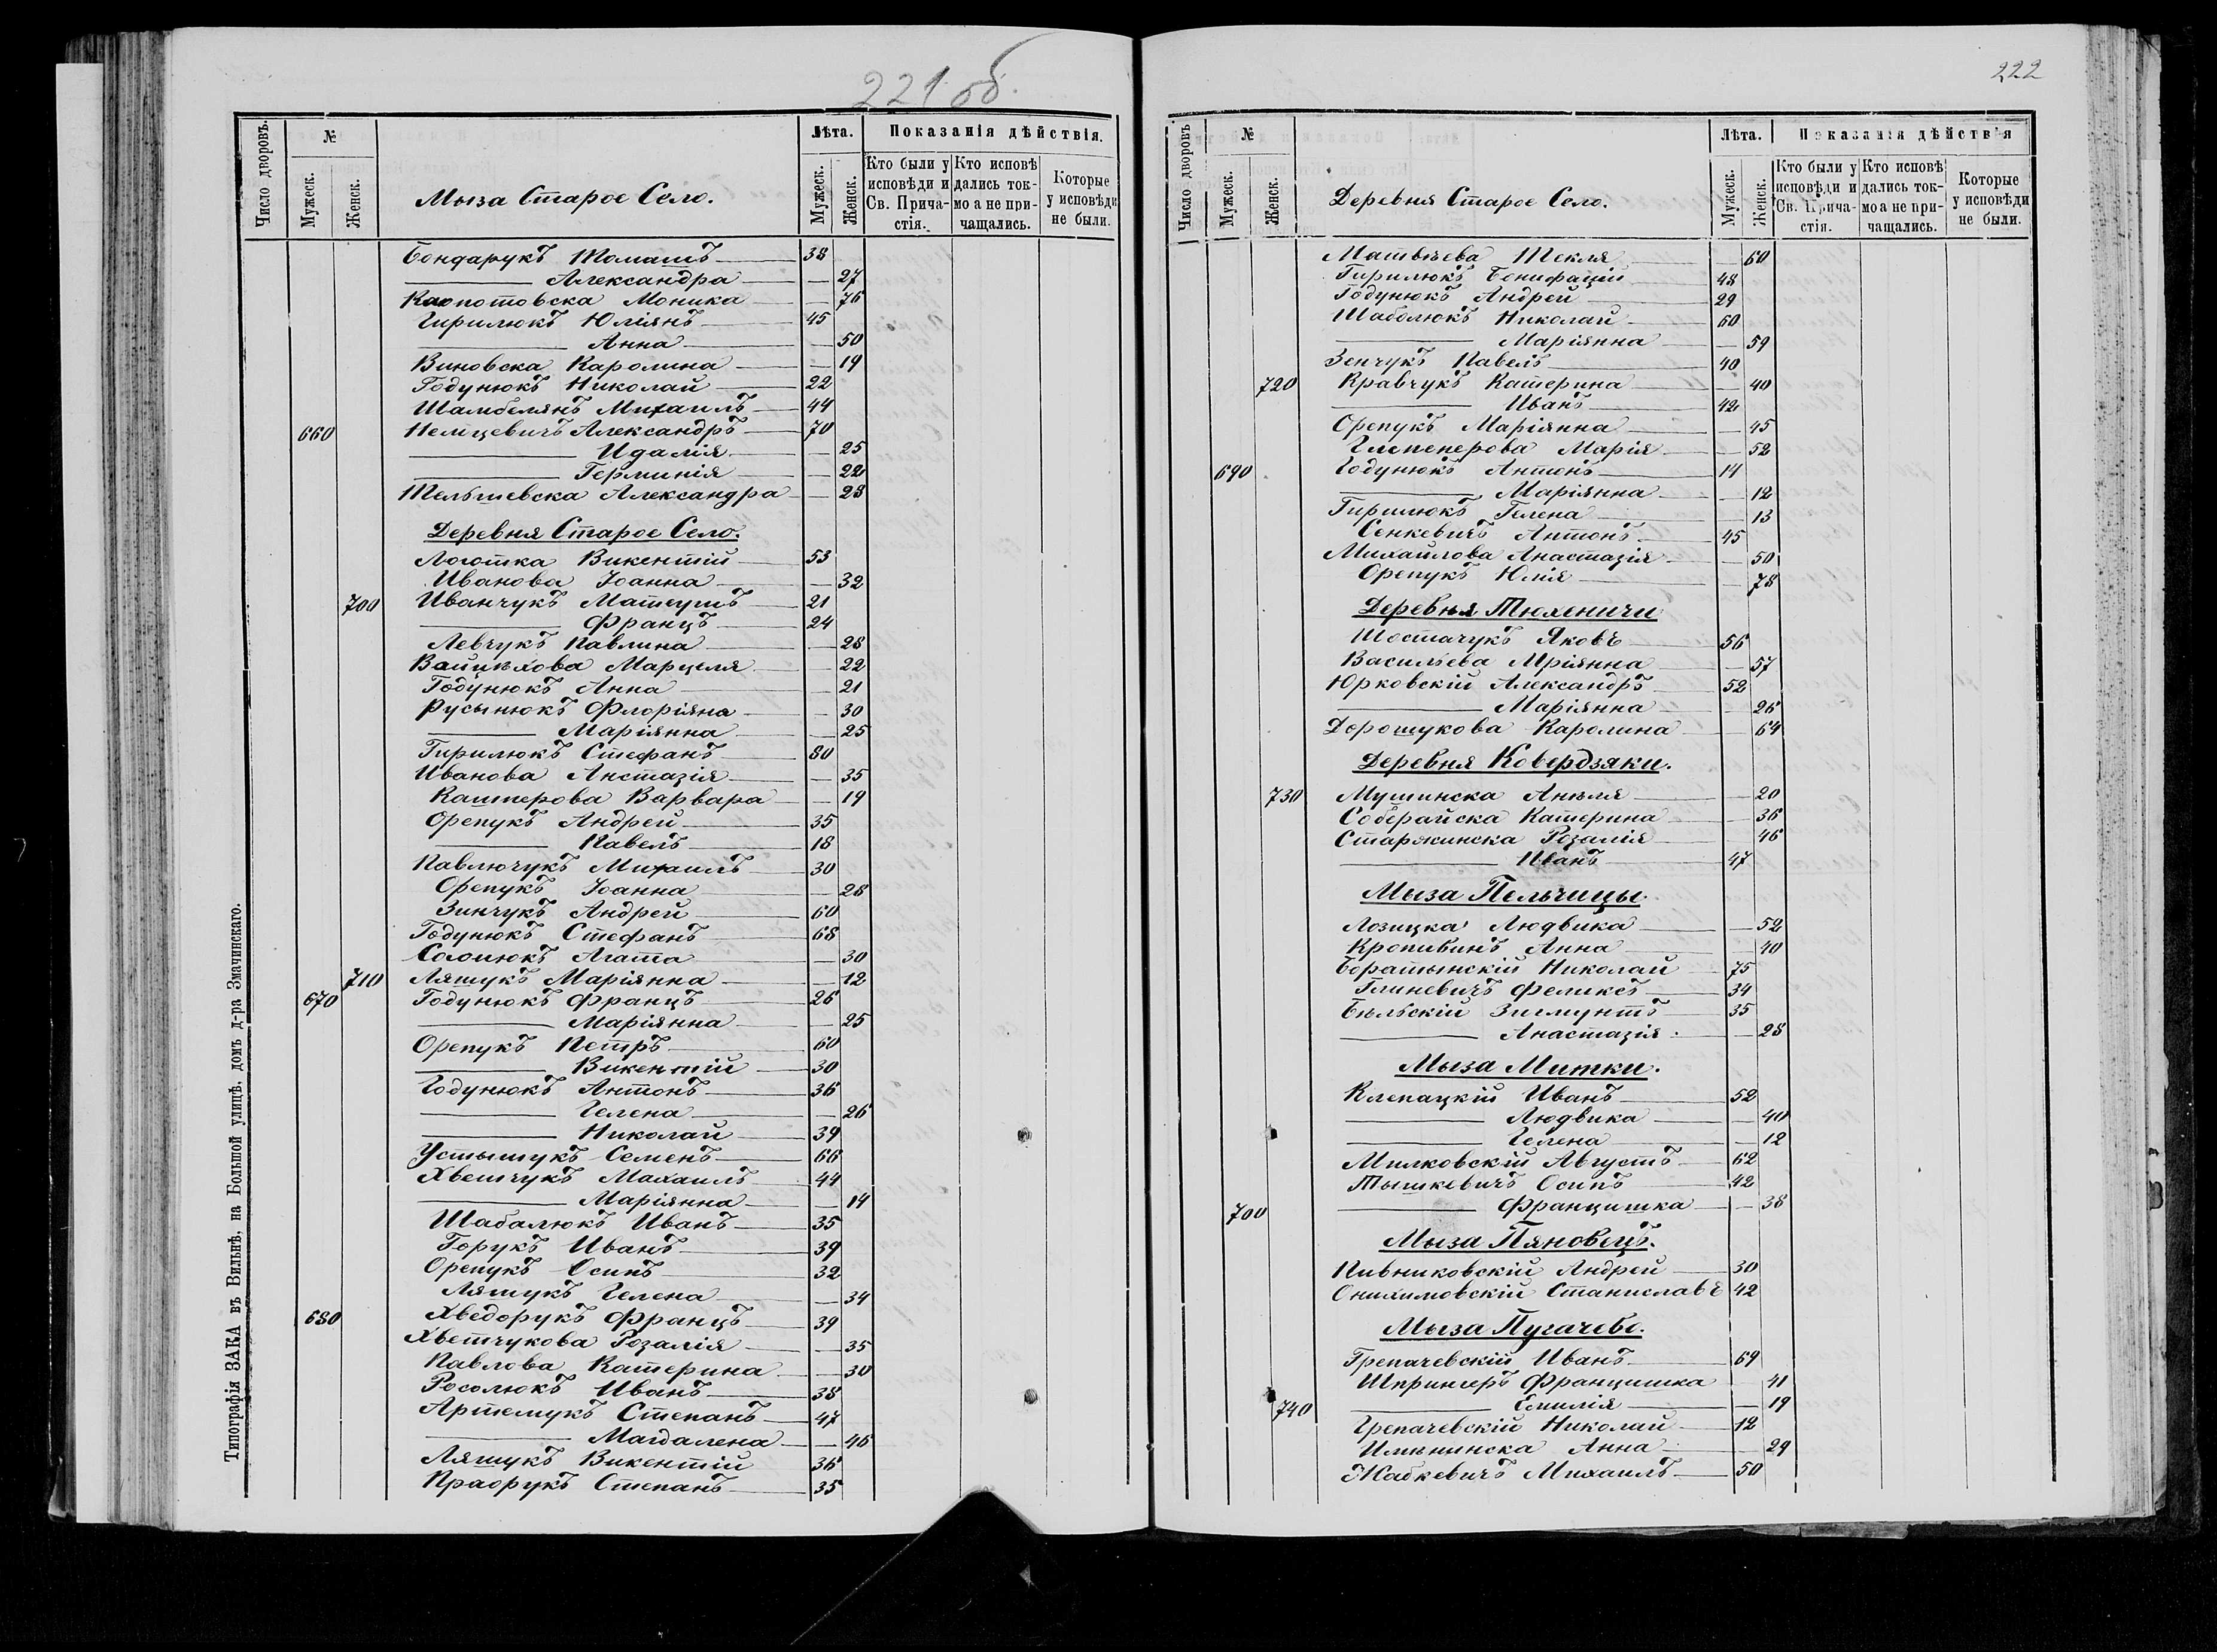 221 об.
Число дворовъ.
№
Мужеск.
Женск.
Мыза Старое Село.
Лѣта.
Мужеск.
Женск.
Показанія дѣйствія.
Кто были у исповѣди и Св. Прича-стія.
Кто исповѣ дались ток-мо а не при-чащались.
Которые у исповѣди не были.
Бондарукъ Томашъ 38
Александра — 27
Клопотовска Моника — 76
Гирилюкъ Юліянъ 45
Анна — 50
Виновска Каролина — 19
Годунюкъ Николай 22
Шамбелянъ Михаилъ 44
660 Немцевичъ Александръ 70
Идалія — 25
Герминія — 22
Тельшевска Александра — 28
Деревня Старое Село.
Логотка Викентій 53
Иванова Іоанна — 32
700 Иванчукъ Матеушъ 21
Францъ 24
Левчукъ Павлина — 28
Вайцѣхова Марцеля — 22
Годунюкъ Анна — 21
Русынюкъ Флоріяна — 30
Маріянна — 25
Гирилюкъ Стефанъ 80
Иванова Анстазія — 35
Каштерова Варвара — 19
Орепукъ Андрей 35
Павелъ 18
Павлючукъ Михаилъ 30
Орепукъ Іоанна — 28
Зинчукъ Андрей 60
Годунюкъ Стефанъ 68
Солонюкъ Агата — 30
710 Ляшукъ Маріянна — 12
670 Годунюкъ Францъ 26
Маріянна — 25
Орепукъ Петръ 60
Викентій 30
Годунюкъ Антонъ 36
Гелена — 26
Николай 39
Устымукъ Семенъ 66
Хветчукъ Махаилъ 44
Маріянна — 14
Шабалюкъ Иванъ 35
Горукъ Иванъ 39
Орепукъ Осипъ 32
Ляшукъ Гелена — 34
680 Хведорукъ Францъ 39
Хветчукова Розалія — 35
Павлова Катерина — 30
Росолюкъ Иванъ 38
Артемукъ Степанъ 47
Магдалена — 46
Ляшукъ Викентій 36
Праорукъ Степанъ 35
Типографія ЗАКА въ Вильнѣ, на Большой улицѣ, домъ д-ра Змачинскаго.
222
Число дворовъ
№
Мужеск.
Женск.
Деревня Старое Село.
Лѣта.
Мужеск.
Женск.
Показанія дѣйствія
Кто были у исповѣди и Св. Прича-стія.
Кто исповѣ дались ток-мо а не при-чащались.
Которые у исповѣди не были.
Матвѣева Текля — 60
Гирилюкъ Бонифацій 48
Годунюкъ Андрей 29
Шаболюкъ Николай 60
Маріянна — 59
Зенчукъ Павелъ 40
720 Кравчукъ Катерина — 40
Иванъ 42
Орепукъ Маріянна — 45
Марія — 52
690 Годунюкъ Антонъ 14
Маріянна — 12
Гирилюкъ Гелена — 13
Сенкевичъ Антонъ 45
Михайлова Анастазія — 50
Орепукъ Юлія — 78
Деревня Тюхеничи
Шостачукъ Яковъ 56
Васильева Мріянна — 57
Юрковскій Александръ 52
Маріянна — 26
Дорошукова Каролина — 64
Деревня Ковердзяки.
730 Мушинска Анѣля — 20
Соберайска Катерина — 36
Старжинска Розалія 46
Иванъ 47
Мыза Пельчицы.
Лозицка Людвика — 52
Кропивинъ Анна — 40
Боратынскій Николай 75
Глиневичъ Феликсъ 34
Бѣльскій Зигмунтъ 35
Анастазія — 28
Мыза Митки.
Клепацкій Иванъ 52
Людвика — 40
Гелена — 12
Милковскій Августъ 62
Тышкевичъ Осипъ 42
700 Францишка — 38
Мыза Пяновецъ.
Пивниковскій Андрей 30
Онихимовскій Станиславъ 42
Мыза Пугачево.
Грепачевскій Иванъ 69
Шпрингеръ Францишка 41
740 Емилія — 19
Грепачевскій Николай 12
Анна — 29
Жабкевичъ Михаилъ 50